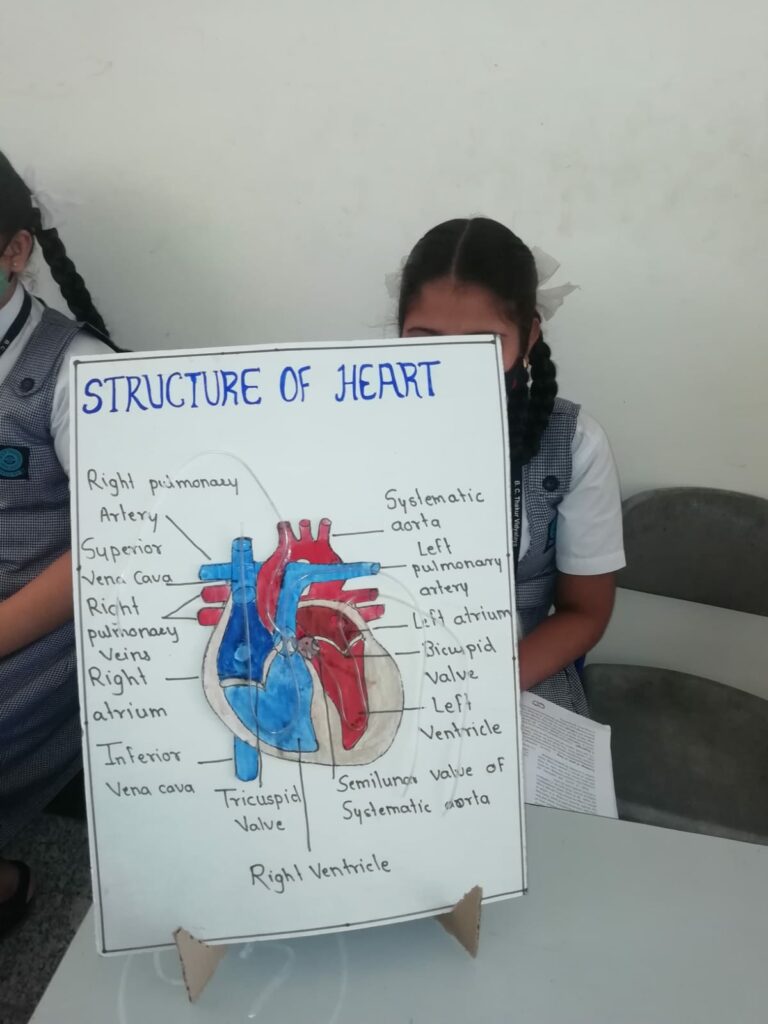 STRUCTURE OF HEART
Right pulmonary
Artery
Superior
Vena Cava
Right
pulmonary
Veins
Right
atrium
Inferior
Vena cava
Tricuspid
Valve
Right Ventricle
Systematic
aorta
Left
pulmonary
artery
Left atrium
Bicuspid
Valve
Left
Ventricle
Semilunar valve of
Systematic aorta
B. C. Thakur Vidyalya